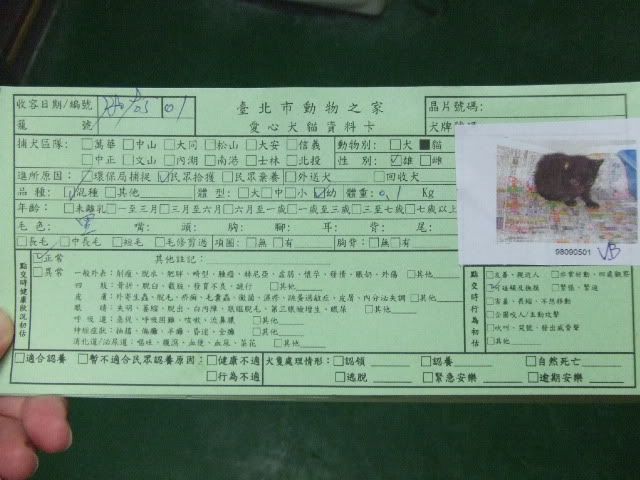 收容日期/編號 01
臺北市動物之家
晶片號碼:
籠 號
愛心犬貓資料卡
犬牌號
捕犬區隊: □萬華 □中山 □大同 □松山 □大安 □信義 動物別: □犬 ■貓
□中正 □文山 □內湖 □南港 □士林 □北投 性 別: ☑雄 □雌
進所原因: □環保局捕捉 ☑民眾拾獲 □民眾棄養 □外送犬 □回收犬
品 種: ☑混種 □其他 體 型: □大 □中 □小 ☑幼 體重: 0.1 Kg
年齡: □未離乳 □一至三月 □三月至六月 □六月至一歲 □一歲至三歲 □三至七歲 □七歲以上
毛 色: 黑 嘴: 頭: 胸: 腳: 耳: 背: 尾:
□長毛 □中長毛 □短毛 □毛修剪過 項圈: □無 □有 胸背: □無 □有
點交時健康狀況初估
☑正常 其他註記:
□異常
一般外表: 削瘦、脫水、肥胖、畸型、腫瘤、林尼亞、虛弱、懷孕、發情、眼奶、外傷 □其他
四 肢: 骨折、脫臼、截肢、發育不良、跛行 □其他
皮 膚: 外寄生蟲、脫毛、疥癬、毛囊蟲、黴菌、濕疹、跳蚤過敏症、皮屑、內分泌失調 □其他
眼 睛: 失明、萎縮、脫出、白內障、眼瞼脫毛、第三眼瞼增生、眼屎 □其他
呼 吸 道: 急促、呼吸困難、咳嗽、流鼻膿 □其他
神經症狀: 抽搐、偏癱、半癱、昏迷、全癱 □其他
消化道/泌尿道: 嘔吐、腹瀉、血便、血尿、菜花 □其他
點交時行為初估
□友善、親近人
□害羞、畏縮、不想移動
□企圖咬人/主動攻擊
□吠叫、發出威脅聲
□其他
98090501
VB
□適合認養 □暫不適合民眾認養原因: □健康不適 犬隻處理情形: □認領 □認養 □自然死亡
□行為不適 □逃脫 □緊急安樂 □逾期安樂